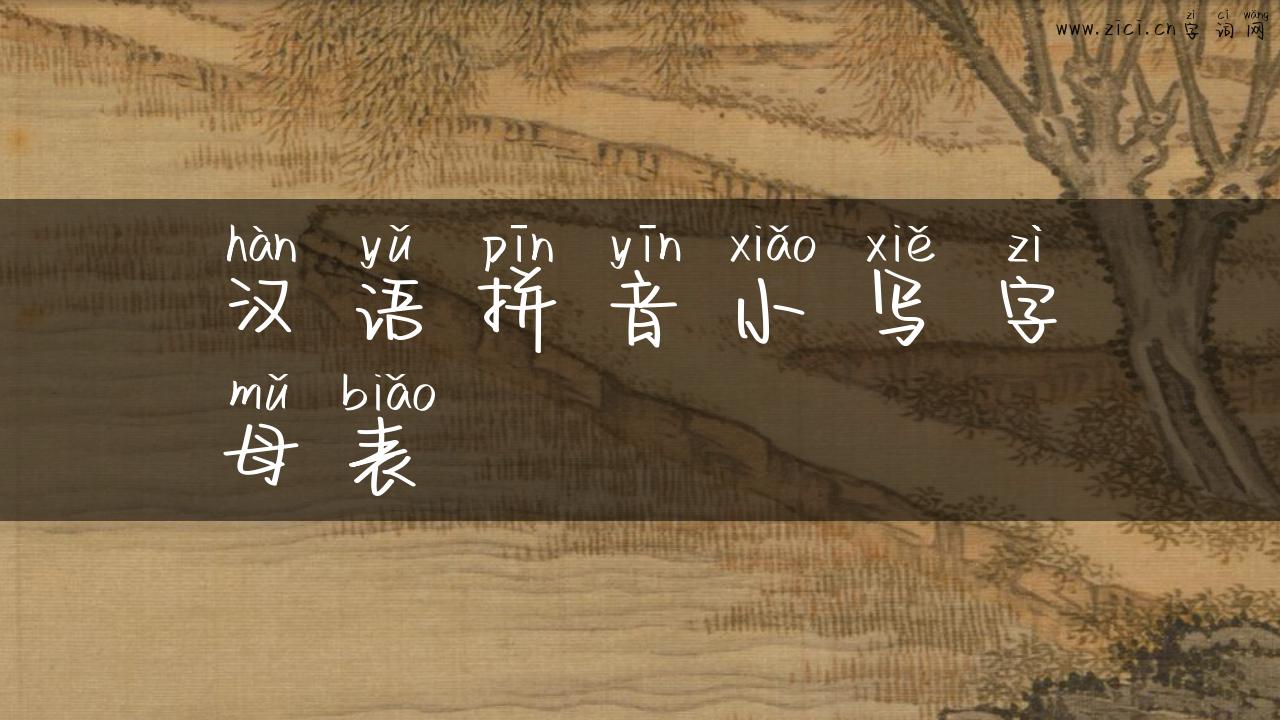 zì cí wǎng
www.zici.cn字词网
hàn yǔ pīn yīn xiǎo xiě zì
汉语拼音小写字
mǔ biǎo
母表